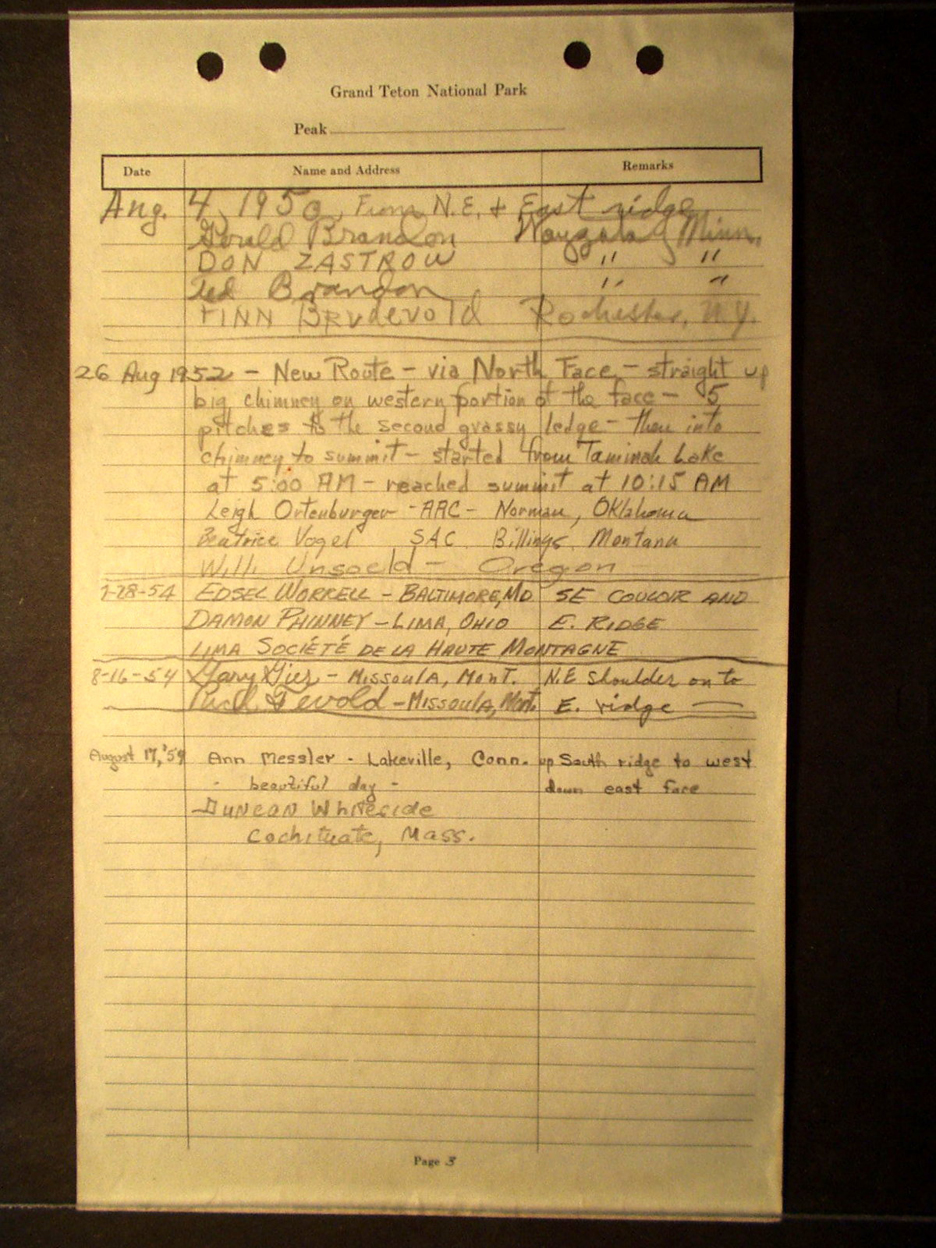 Grand Teton National Park
Peak
Date Name and Address Remarks
Aug. 4, 1950, From N.E. & East ridge
Gerald Brandon Wayzata, Minn.
DON ZASTROW " "
Ted Brandon " "
FINN BRUDEVOLD Rochester, N.Y.
26 Aug 1952 - New Route - via North Face - straight up
big chimney on western portion of the face - 5
pitches to the second grassy ledge - then into
chimney to summit - started from Taminah Lake
at 5:00 AM - reached summit at 10:15 AM
Leigh Ortenburger - AAC - Norman, Oklahoma
Beatrice Vogel SAC Billings Montana
Willi Unsoeld - Oregon
7-28-54 EDSEL WORRELL - BALTIMORE, MD SE COULOIR AND
DAMON PHINNEY - LIMA, OHIO E. RIDGE
LIMA SOCIÉTÉ DE LA HAUTE MONTAGNE
8-16-54 Gary Gier - MISSOULA, MONT. N.E shoulder on to
- MISSOULA, Mont. E. ridge
August 17, '59 Ann Messler - Lakeville, Conn. up South ridge to west
- beautiful day - down east face
DUNCAN Whiteside
Cochituate, Mass.
Page 5